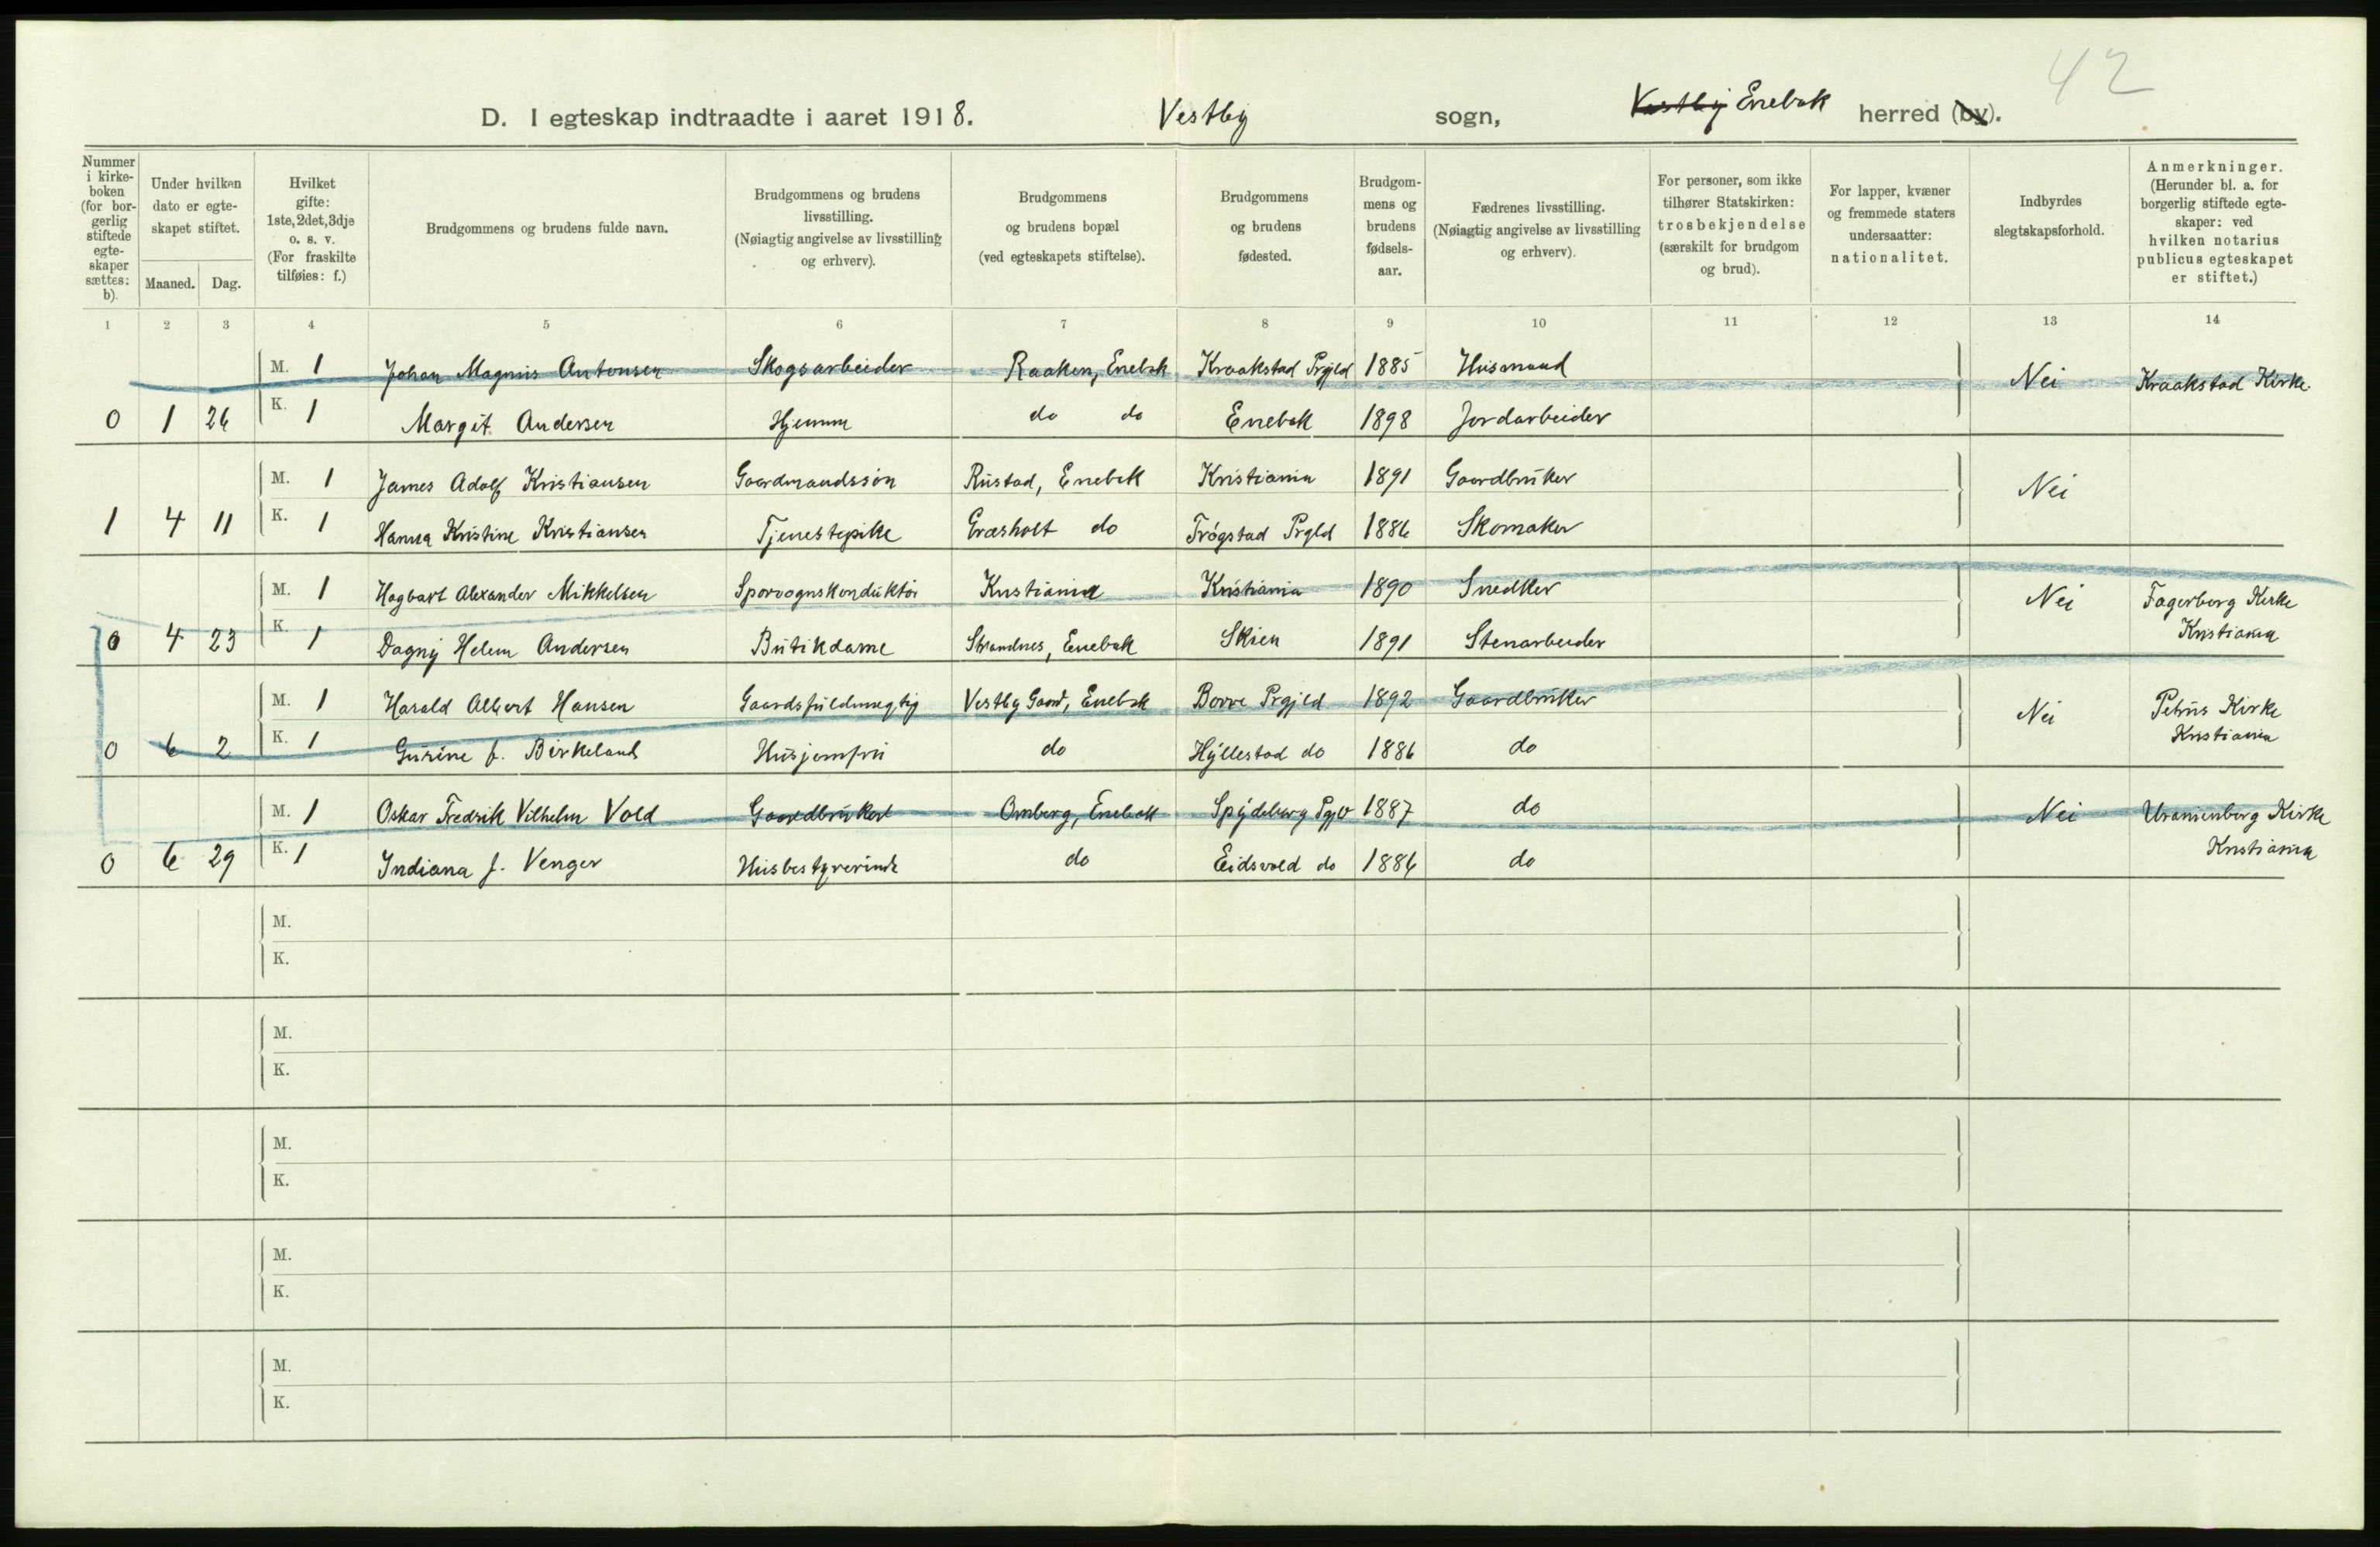 42
D. I egteskap indtraadte i aaret 1918. Vestby sogn, Vestby Enebak herred (by).
Nummer i kirke-boken (for bor-gerlig stiftede egte-skaper sættes: b).
Under hvilken dato er egte-skapet stiftet.
Maaned. Dag.
Hvilket gifte: 1ste, 2det, 3dje o. s. v. (For fraskilte tilføies: f.)
Brudgommens og brudens fulde navn.
Brudgommens og brudens livsstilling. (Nøiagtig angivelse av livsstilling og erhverv).
Brudgommens og brudens bopæl (ved egteskapets stiftelse).
Brudgommens og brudens fødested.
Brudgom-mens og brudens fødsels-aar.
Fædrenes livsstilling. (Nøiagtig angivelse av livsstilling og erhverv).
For personer, som ikke tilhører Statskirken: trosbekjendelse (særskilt for brudgom og brud).
For lapper, kvæner og fremmede staters undersaatter: nationalitet.
Indbyrdes slegtskapsforhold.
Anmerkninger. (Herunder bl. a. for borgerlig stiftede egte-skaper: ved hvilken notarius publicus egteskapet er stiftet.)
1 2 3 4 5 6 7 8 9 10 11 12 13 14
M. 1 Johan Magnus Antonsen Skogsarbeider Raaken, Enebak Kraakstad Prgjld 1885 Husmand Nei Kraakstad Kirke
0 1 26 K. 1 Margit Andersen Hjemme do do Enebak 1898 Jordarbeider
M. 1 James Adolf Kristiansen Gaardmandssøn Rustad, Enebak Kristiania 1891 Gaardbruker Nei
1 4 11 K. 1 Hanna Kristine Kristiansen Tjenestepike Græsholt do Trøgstad Prgld 1886 Skomaker
M. 1 Hagbart Alexander Mikkelsen Sporvognskonduktør Kristiania Kristiania 1890 Snedker Nei Fagerborg Kirke
0 4 23 K. 1 Dagny Helene Andersen Butikdame Strandnes, Enebak Skien 1891 Stenarbeider Kristiania
M. 1 Harald Albert Hansen Gaardsfuldmegtig Vestby Gaard, Enebak Borre Prgjld 1892 Gaardbruker Nei Petrus Kirke
0 6 2 K. 1 Gurine f. Birkeland Husjomfru do Hyllestad do 1886 do Kristiania
M. 1 Oskar Fredrik Vilhelm Vold Gaardbruker Omberg, Enebak Spydeberg Pgjld 1887 do Nei Uranienborg Kirke
0 6 29 K. 1 Indiana f. Venger Husbestyrerinde do Eidsvold do 1886 do Kristiania
M.
K.
M.
K.
M.
K.
M.
K.
M.
K.